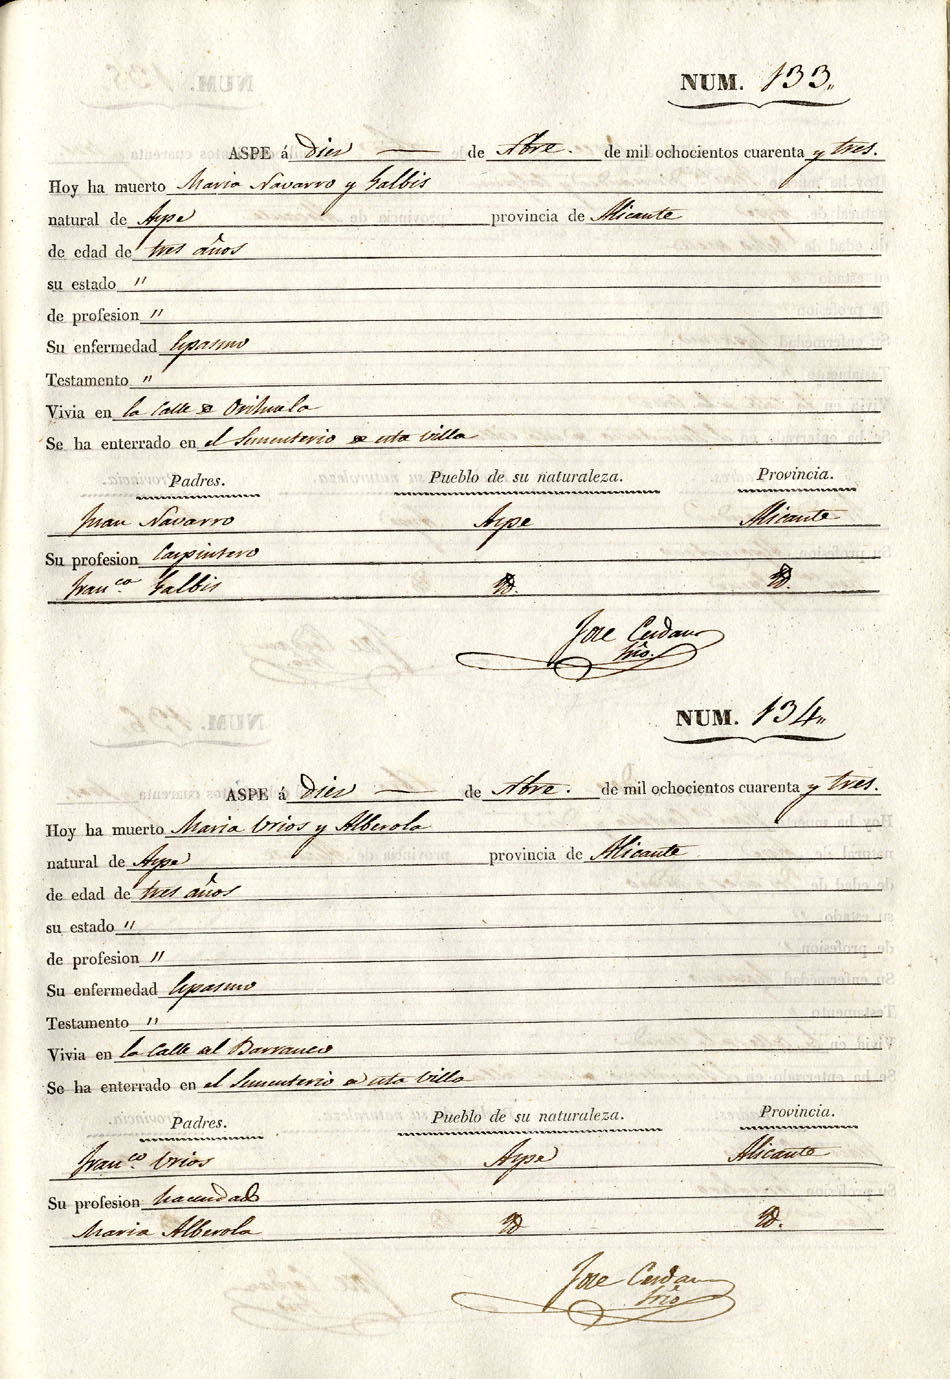 NUM. 133„
ASPE á Diez de Abre. de mil ochocientos cuarenta y tres.
Hoy ha muerto Maria Navarro y Galbis
natural de Aspe provincia de Alicante
de edad de tres años
su estado "
de profesion "
Su enfermedad Espasmo
Testamento "
Vivia en la Calle de Orihuela
Se ha enterrado en el Sementerio de esta Villa
Padres. Pueblo de su naturaleza. Provincia.
Juan Navarro Aspe Alicante
Su profesion Carpintero
Franca. Galbis Yd. Yd.
Jose Cerdan
Srio.
NUM. 134„
ASPE á Diez de Abre. de mil ochocientos cuarenta y tres.
Hoy ha muerto Maria Urios y Alberola
natural de Aspe provincia de Alicante
de edad de tres años
su estado "
de profesion "
Su enfermedad Espasmo
Testamento "
Vivia en la Calle del Barranco
Se ha enterrado en el Sementerio de esta Villa
Padres. Pueblo de su naturaleza. Provincia.
Franco. Urios Aspe Alicante
Su profesion hacendado
Maria Alberola Yd Yd.
Jose Cerdan
Srio